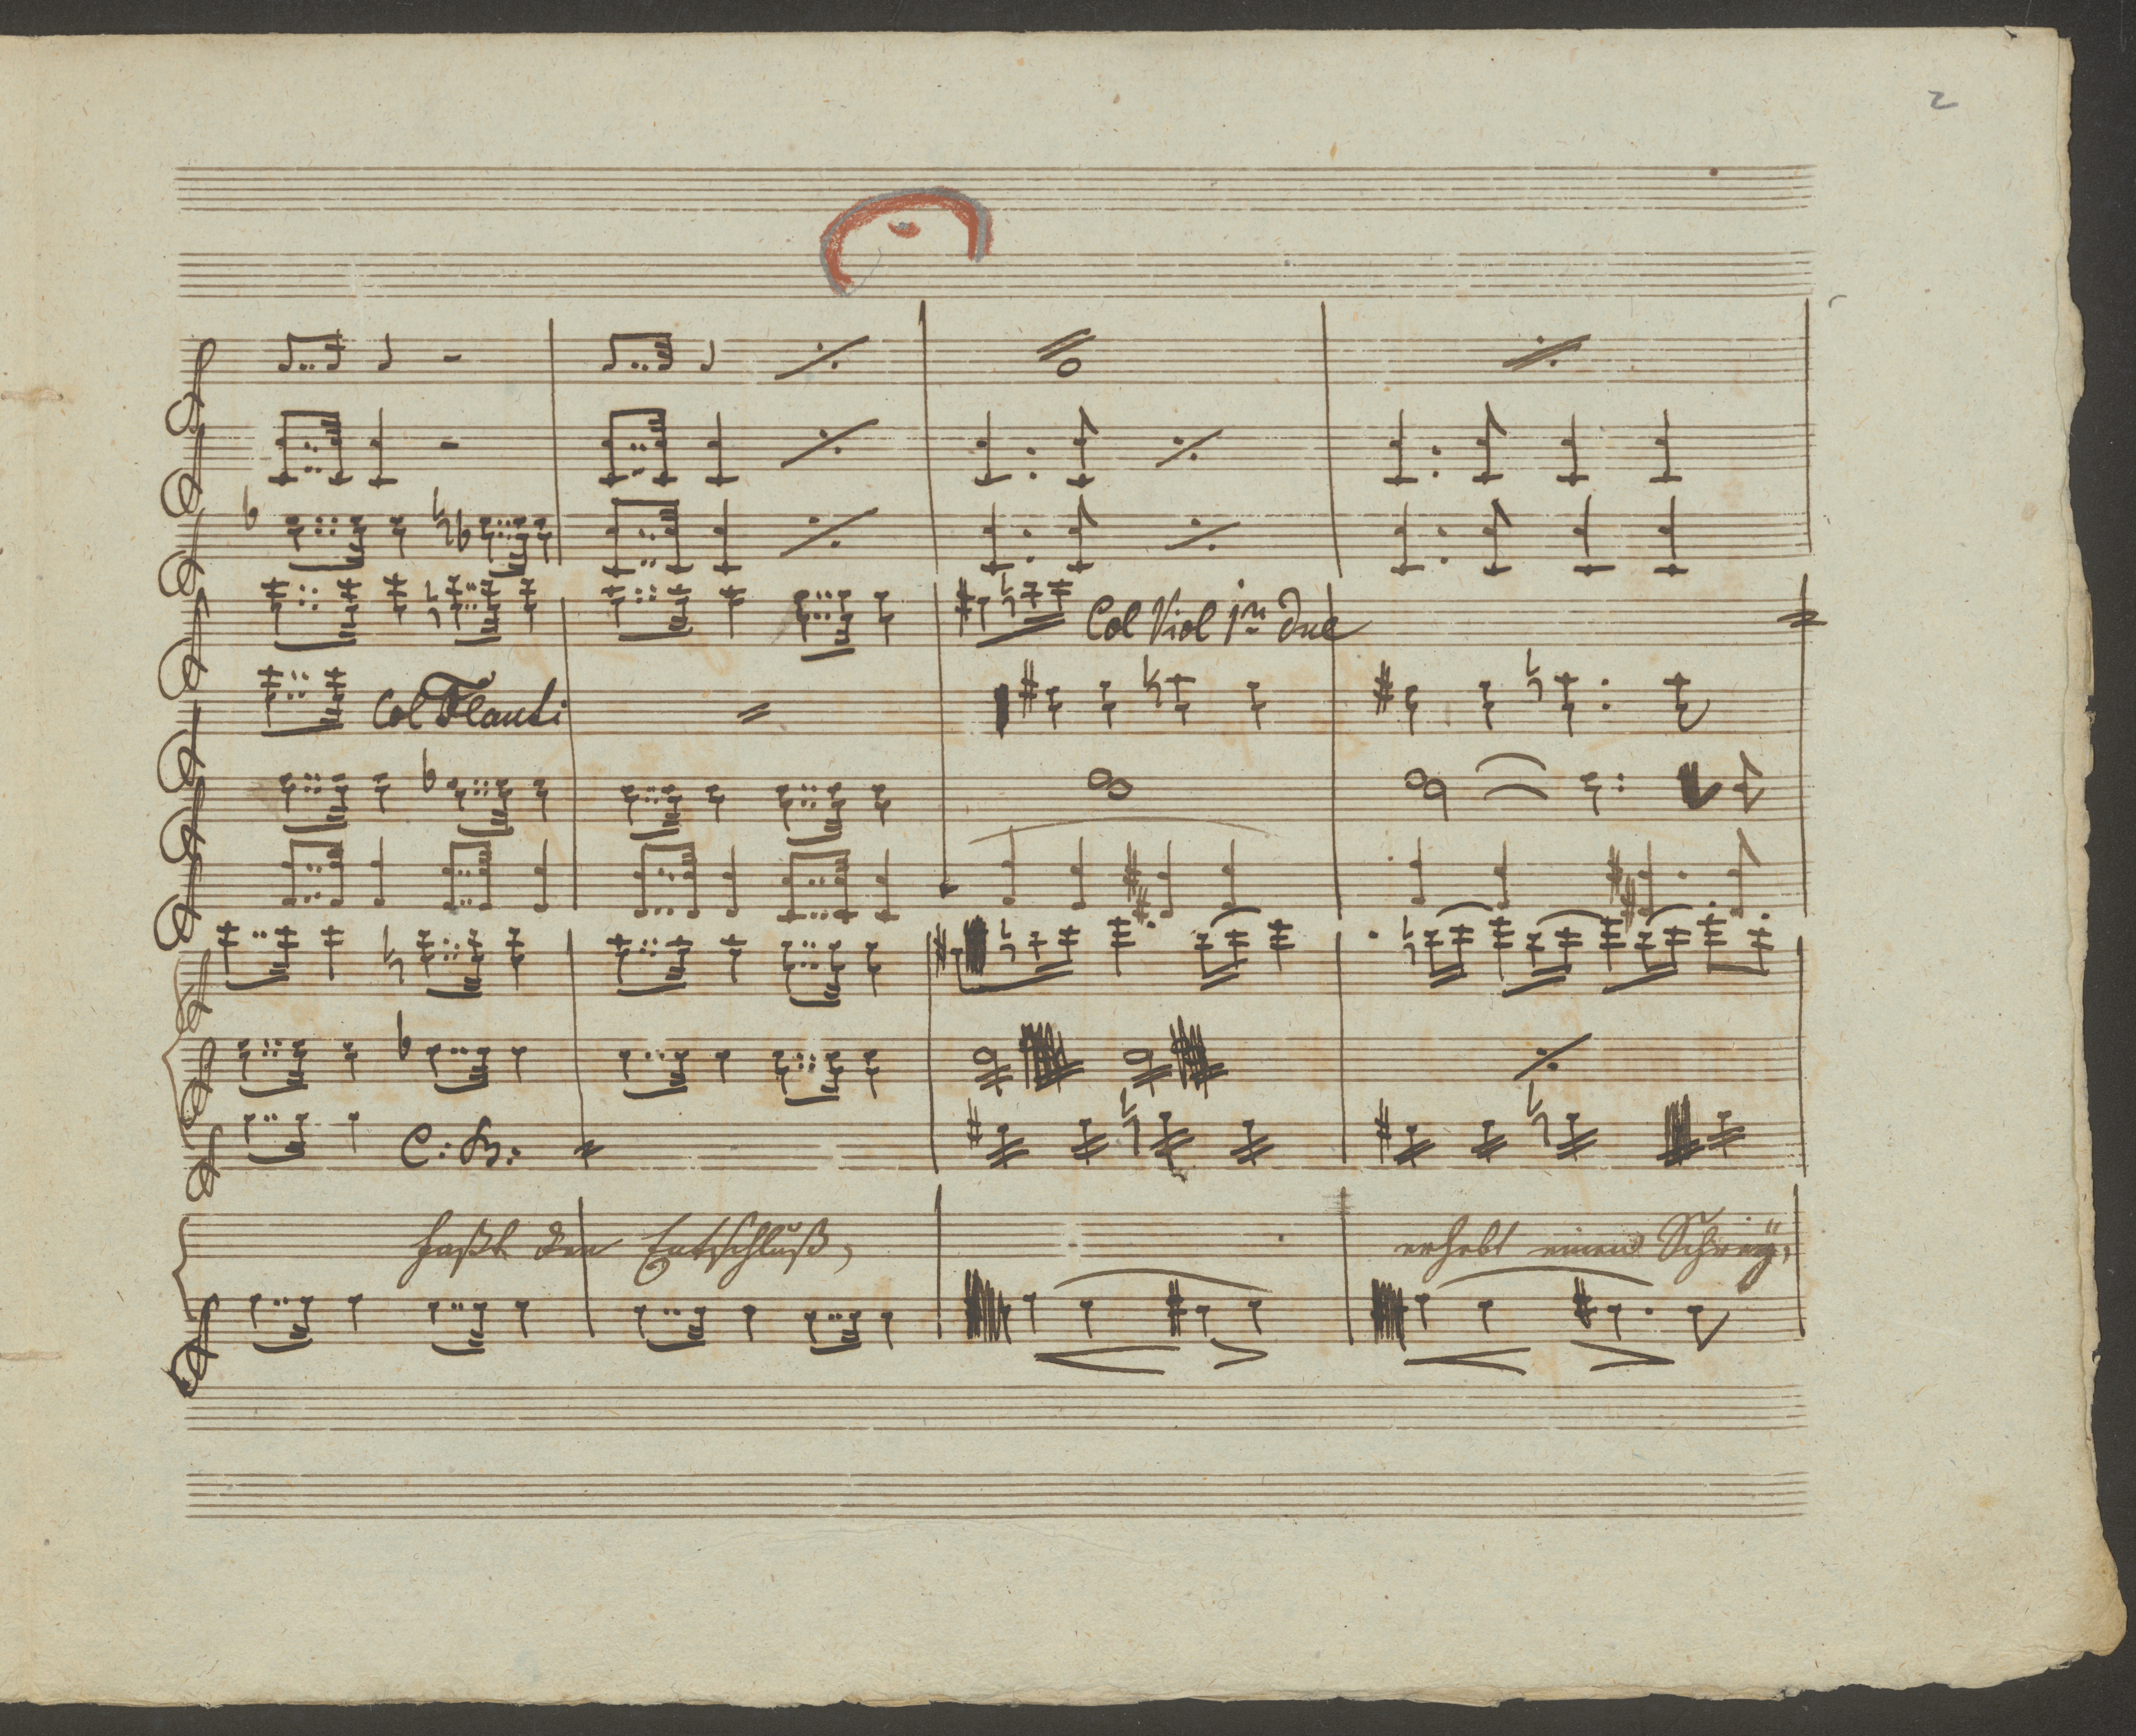 2
Col Viol 1mo due
Col Flauti
C: B:
faßt den Entschluß,
erhebt einen Schrey,